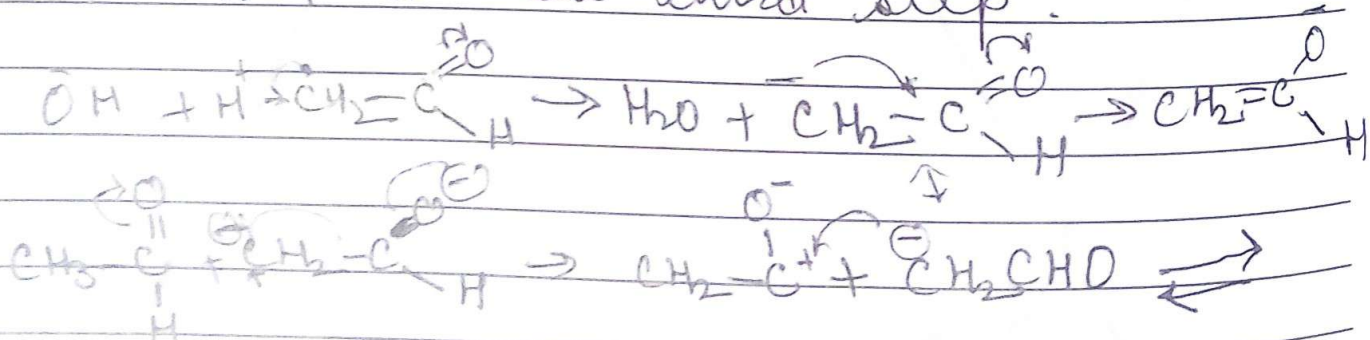 step.
O
ŌH + H⁺ CH₂=C=O H → H₂O + ⁻CH₂-C=O H → CH₂=C H
O O⁻
CH₃-C + ⊖CH₂-C O⊖ H → CH₂-C⁺ + ⊖CH₂CHO ⇌
H